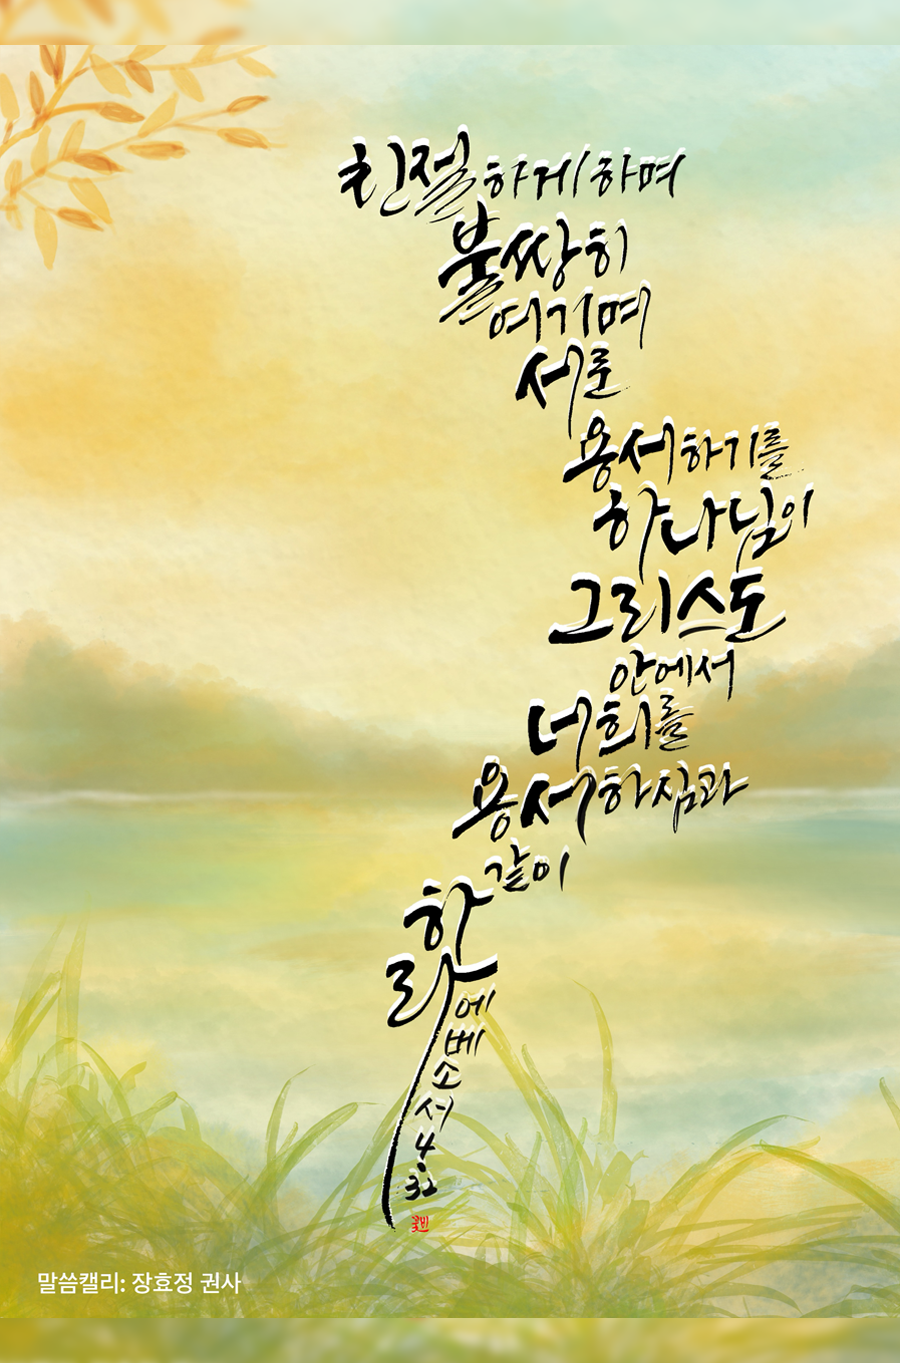 친절하게하며
불쌍히
여기며
서로
용서하기를
하나님이
그리스도
안에서
너희를
용서하심과
같이
하
라
에
베
소
서
4.
32
말씀캘리: 장효정 권사